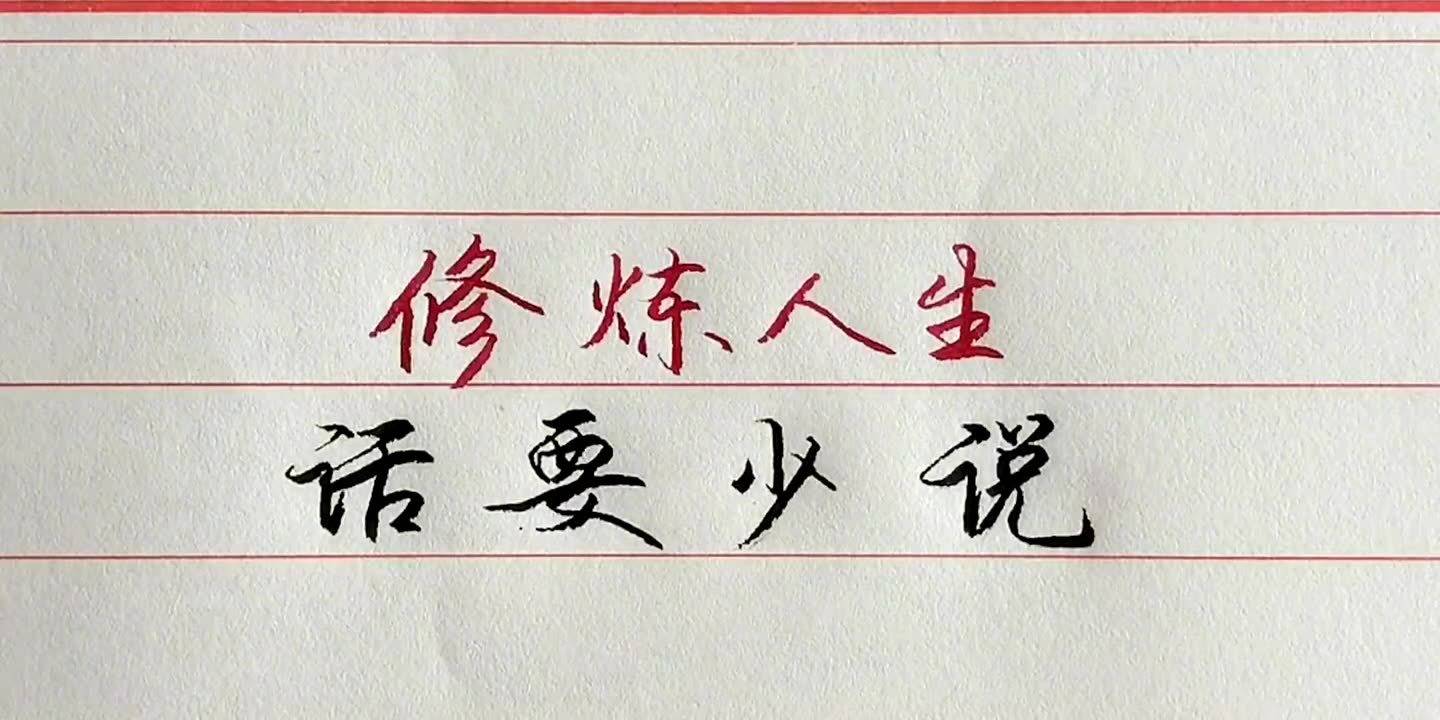 修炼人生
话要少说